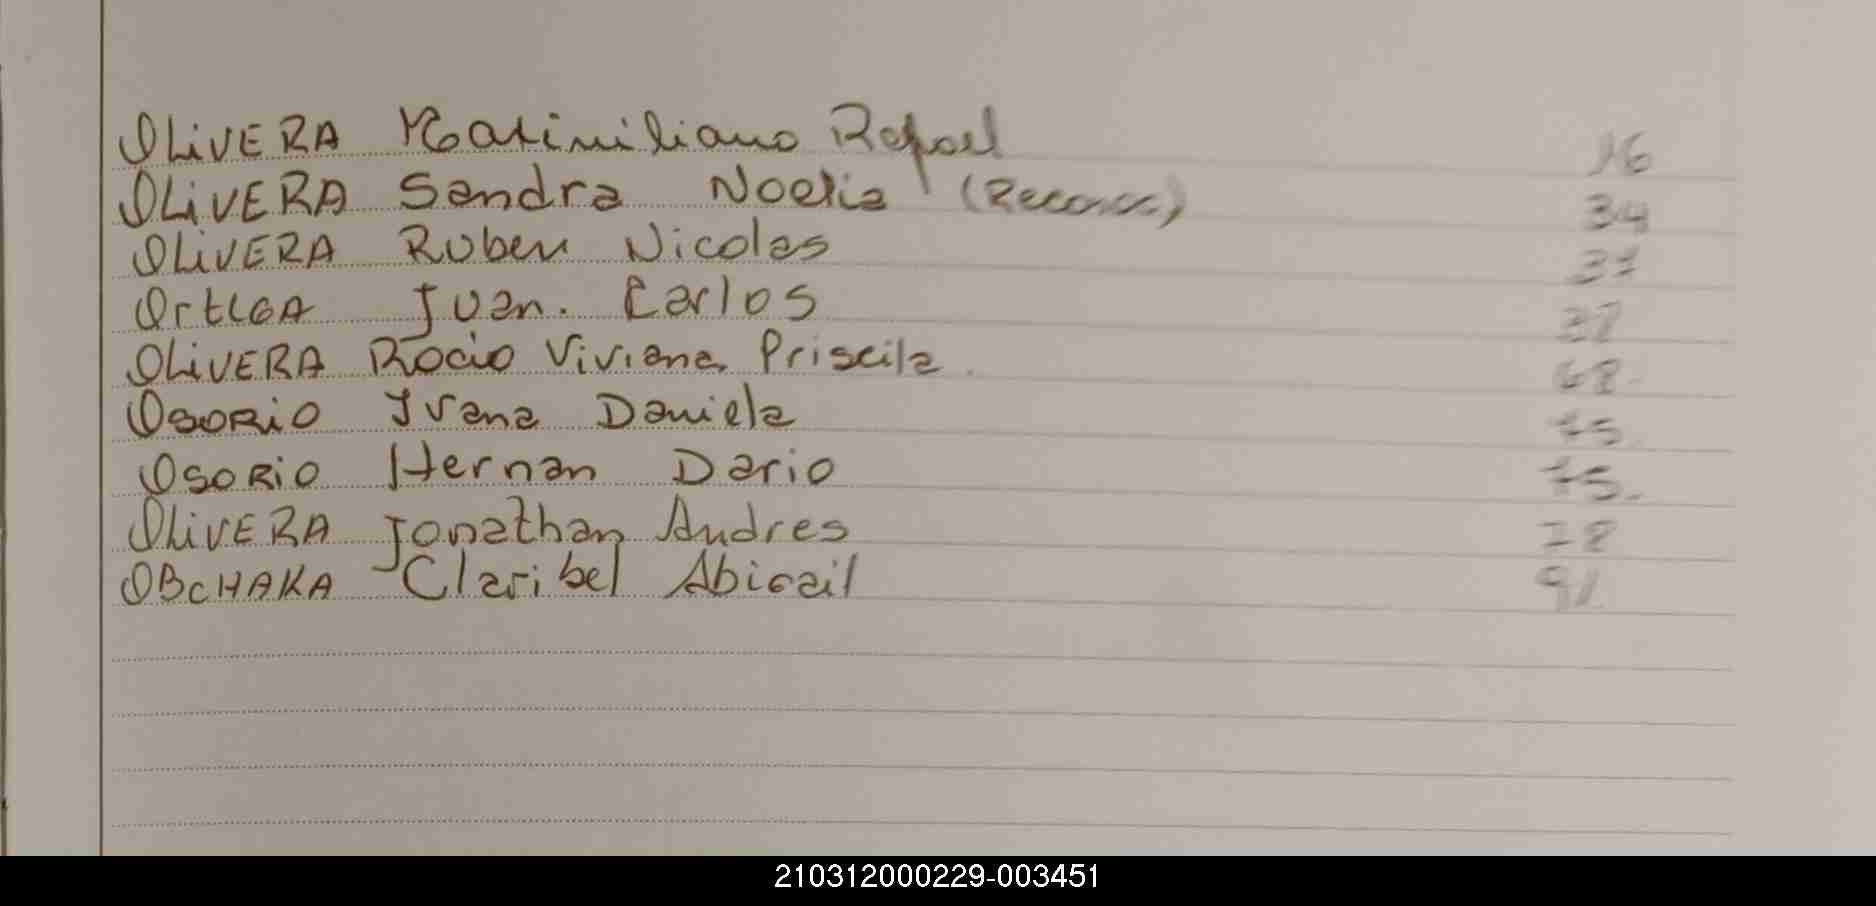 OLIVERA Maximiliano Rafael 16
OLIVERA Sandra Noelia (Reconoc) 34
OLIVERA Ruben Nicolas 37
OrtEGA Juan. Carlos 37
OLIVERA Rocio Viviana Priscila. 68
OSORIO Ivana Daniela 75.
OSORIO Hernan Dario 75.
OLIVERA Jonathan Andres 78
OBCHAKA Claribel Abigail 91
210312000229-003451